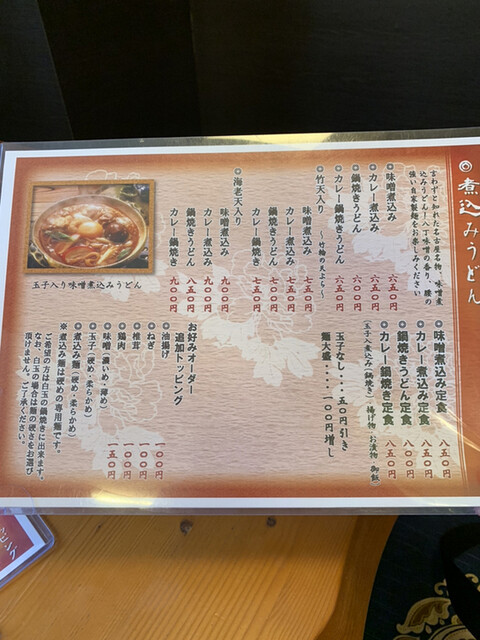 煮込みうどん
言わずとかれた名古屋名物、味噌煮
込みうどん!八丁味噌の香り、腰の
強い自家製麺をお楽しみください
味噌煮込み 六五〇円
カレー煮込み 六五〇円
鍋焼きうどん 六〇〇円
カレー鍋焼きうどん 六五〇円
竹天入り ～竹輪の天ぷら～
味噌煮込み 七五〇円
カレー煮込み 七五〇円
鍋焼きうどん 七〇〇円
カレー鍋焼き 七五〇円
海老天入り
味噌煮込み 九〇〇円
カレー煮込み 九〇〇円
鍋焼きうどん 八五〇円
カレー鍋焼き 九〇〇円
玉子入り味噌煮込みうどん
味噌煮込み定食 八五〇円
カレー煮込み定食 八五〇円
鍋焼きうどん定食 八〇〇円
カレー鍋焼き定食 八五〇円
(玉子入煮込み)(鍋焼き) 揚げ物 お漬物 御飯
玉子なし・・・五〇円引き
麺大盛・・・・一〇〇円増し
お好みオーダー
追加トッピング
油揚げ 一〇〇円
ねぎ 一〇〇円
椎茸 一〇〇円
鶏肉 一五〇円
味噌(濃いめ・薄め)
玉子(硬め・柔らかめ)
煮込み麺(硬め・柔らかめ)
※煮込み麺は硬めの専用麺です。
ご希望の方は白玉の鍋焼きに出来ます。
なお、白玉の場合は麺の硬さをお選び
頂けません。ご了承ください。